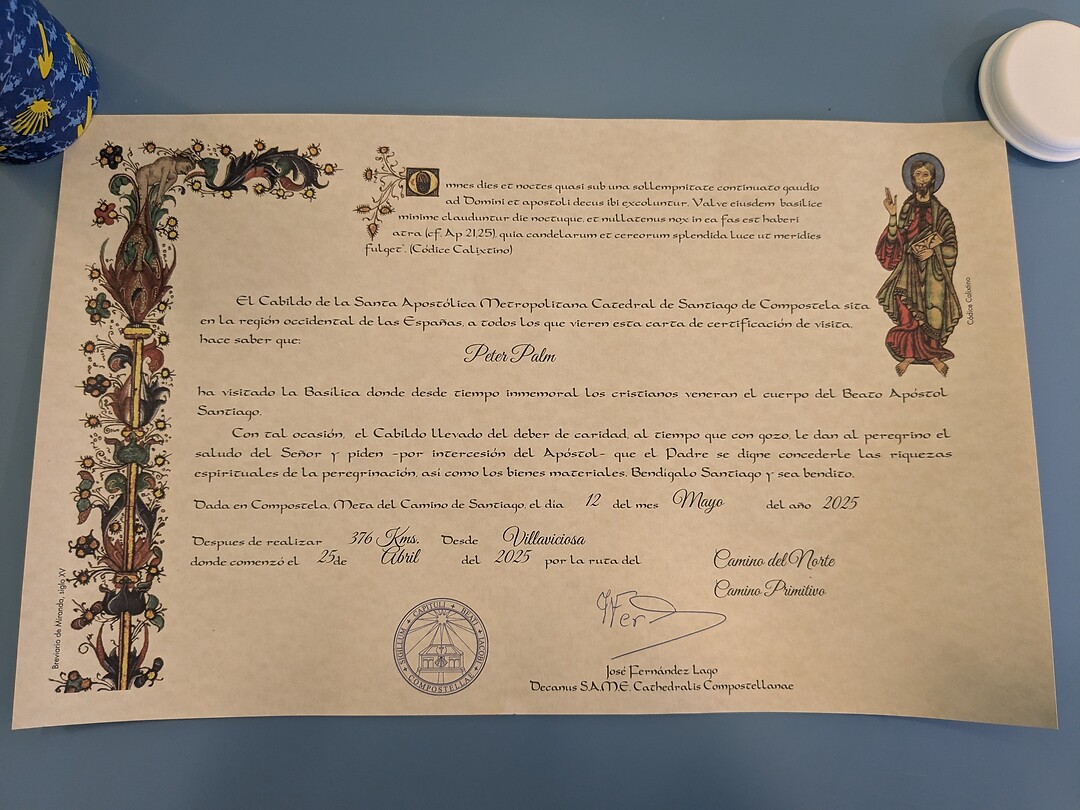 Omnes dies et noctes quasi sub una sollempnitate continuato gaudio
ad Domini et apostoli decus ibi excoluntur. Valve eiusdem basilice
minime clauduntur die noctuque, et nullatenus nox in ea fas est haberi
atra (cf. Ap 21,25), quia candelarum et cereorum splendida luce ut meridies
fulget". (Códice Calixtino)
Códice Calixtino
El Cabildo de la Santa Apostólica Metropolitana Catedral de Santiago de Compostela sita
en la región occidental de las Españas, a todos los que vieren esta carta de certificación de visita,
hace saber que:
Peter Palm
ha visitado la Basílica donde desde tiempo inmemoral los cristianos veneran el cuerpo del Beato Apóstol
Santiago.
Con tal ocasión, el Cabildo llevado del deber de caridad, al tiempo que con gozo, le dan al peregrino el
saludo del Señor y piden -por intercesión del Apóstol- que el Padre se digne concederle las riquezas
espirituales de la peregrinación, así como los bienes materiales. Bendígalo Santiago y sea bendito.
Dada en Compostela, Meta del Camino de Santiago, el día 12 del mes Mayo del año 2025
Despues de realizar 376 Kms. Desde Villaviciosa
donde comenzó el 25 de Abril del 2025 por la ruta del Camino del Norte
Camino Primitivo
Breviario de Miranda, siglo XV
SIGILLUM CAPITULI BEATI JACOBI COMPOSTELLAE
José Fernández Lago
Decanus S.A.M.E. Cathedralis Compostellanae